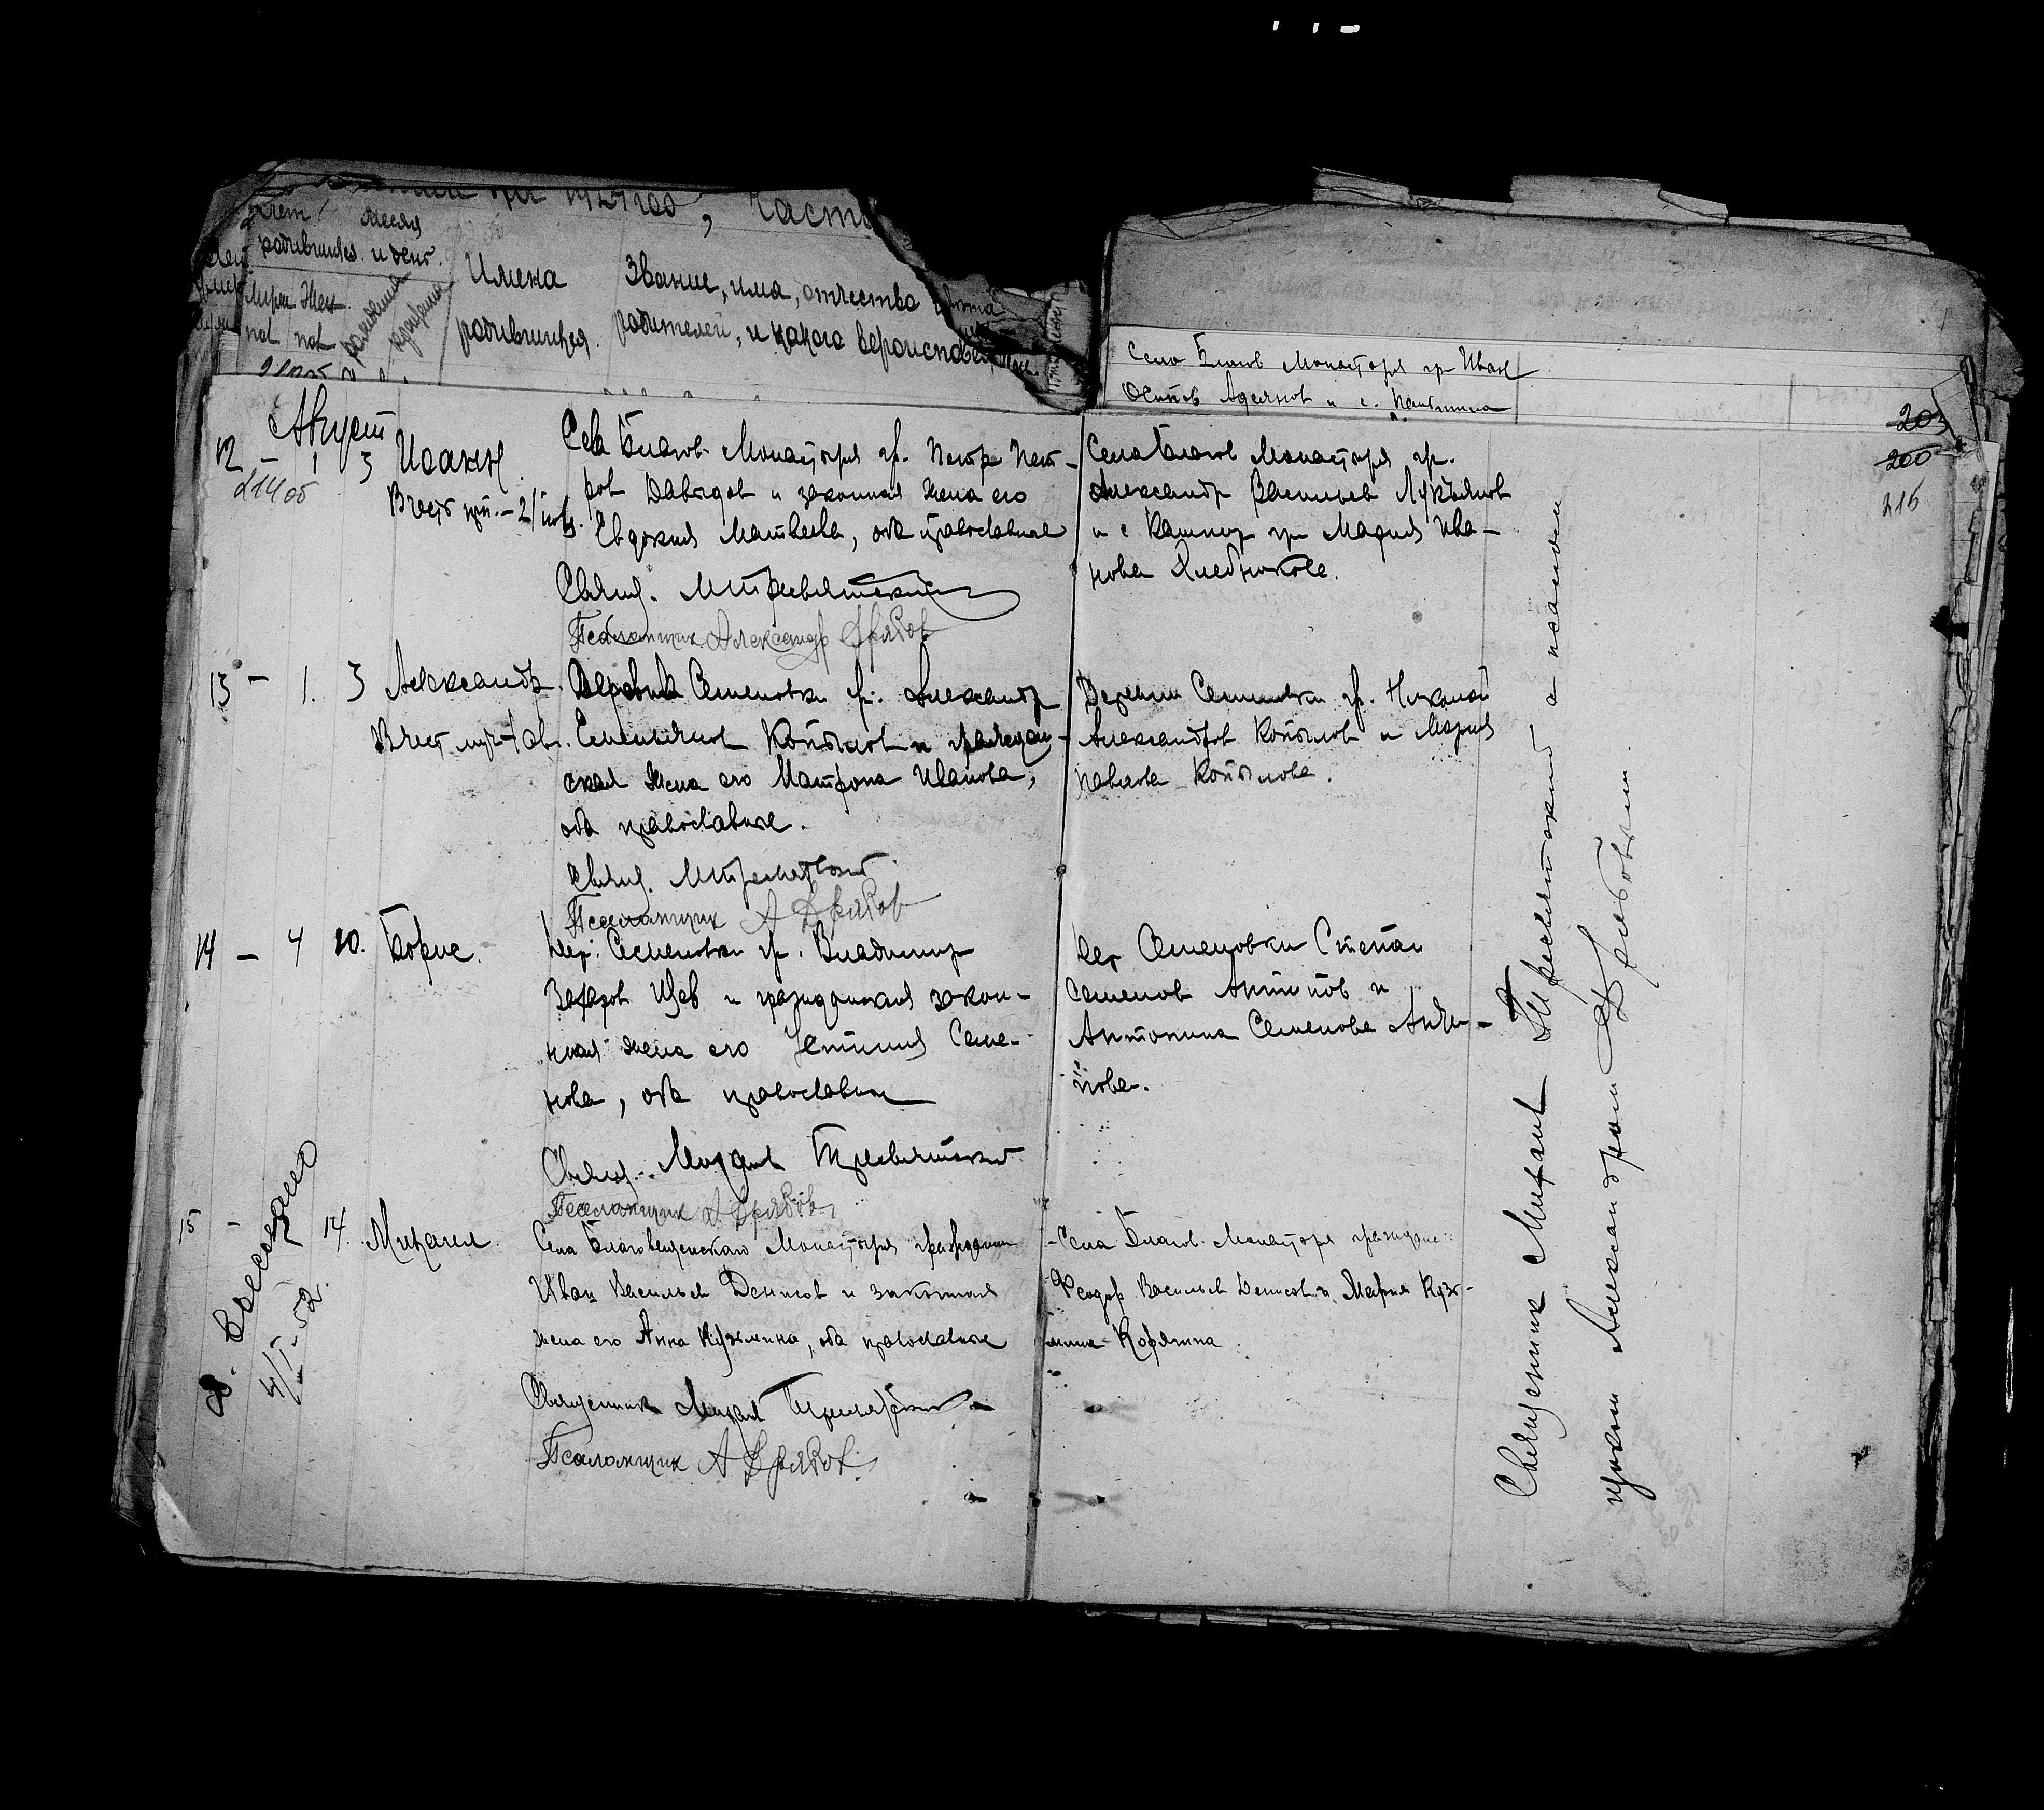 на 1924 год, Часть
счет
родившихся
Месяц
и день.
Муж. Жен.
пол пол
рождения
крещения
Имена
родившихся.
Звание, имя, отчество
родителей, и какого вероисповед.
Село Благов Монастыря гр Иван
Осипов и с.
203
200
216
Август
12 – 1 3 Иоанн
214 об
В честь
Села Благов. Монастыря гр. Петр Пет-
ров Давыдов и законная жена его
Евдокия Матвеева, оба православные
Свящ. М Тресвятский
Псаломщик Александр
Села Благов Монастыря гр.
Александр Васильев Лукьянов
и с Кашпир гр Мария Ива-
нова Хлебникова.
13 – 1. 3 Александр.
В чест муч
Деревни Семеновки гр. Александр
Емельянов Копылов и граждан-
ская жена его Матрона Иванова,
оба православные.
Свящ. М Тресвятский
Псаломщик А
Деревни Семеновки гр. Николай
Александров Копылов и Мария
Павлова Копылова.
14 – 4 10. Борис.
Дер. Семеновки гр. Владимир
Захаров и гражданская закон-
ная жена его Устиния Семе-
нова, оба православные
Свящ. Михаил Тресвятский
Псаломщик А
Дер Семеновки Степан
Семенов Антипов и
Антонина Семенова Анти-
пова.
15 – 14. Михаил
4/I-52.
Села Благовещенскаго Монастыря гражданин
Иван Васильев Денисов и законная
жена его Анна Кузьмина, оба православные
Священник Михаил Тресвятский
Псаломщик А
Села Благов. Монастыря граждане
Феодор Васильев Денисов и Мария Кузь-
мина Корягина
Священник Михаил Тресвятский а псалом
щиком Александром